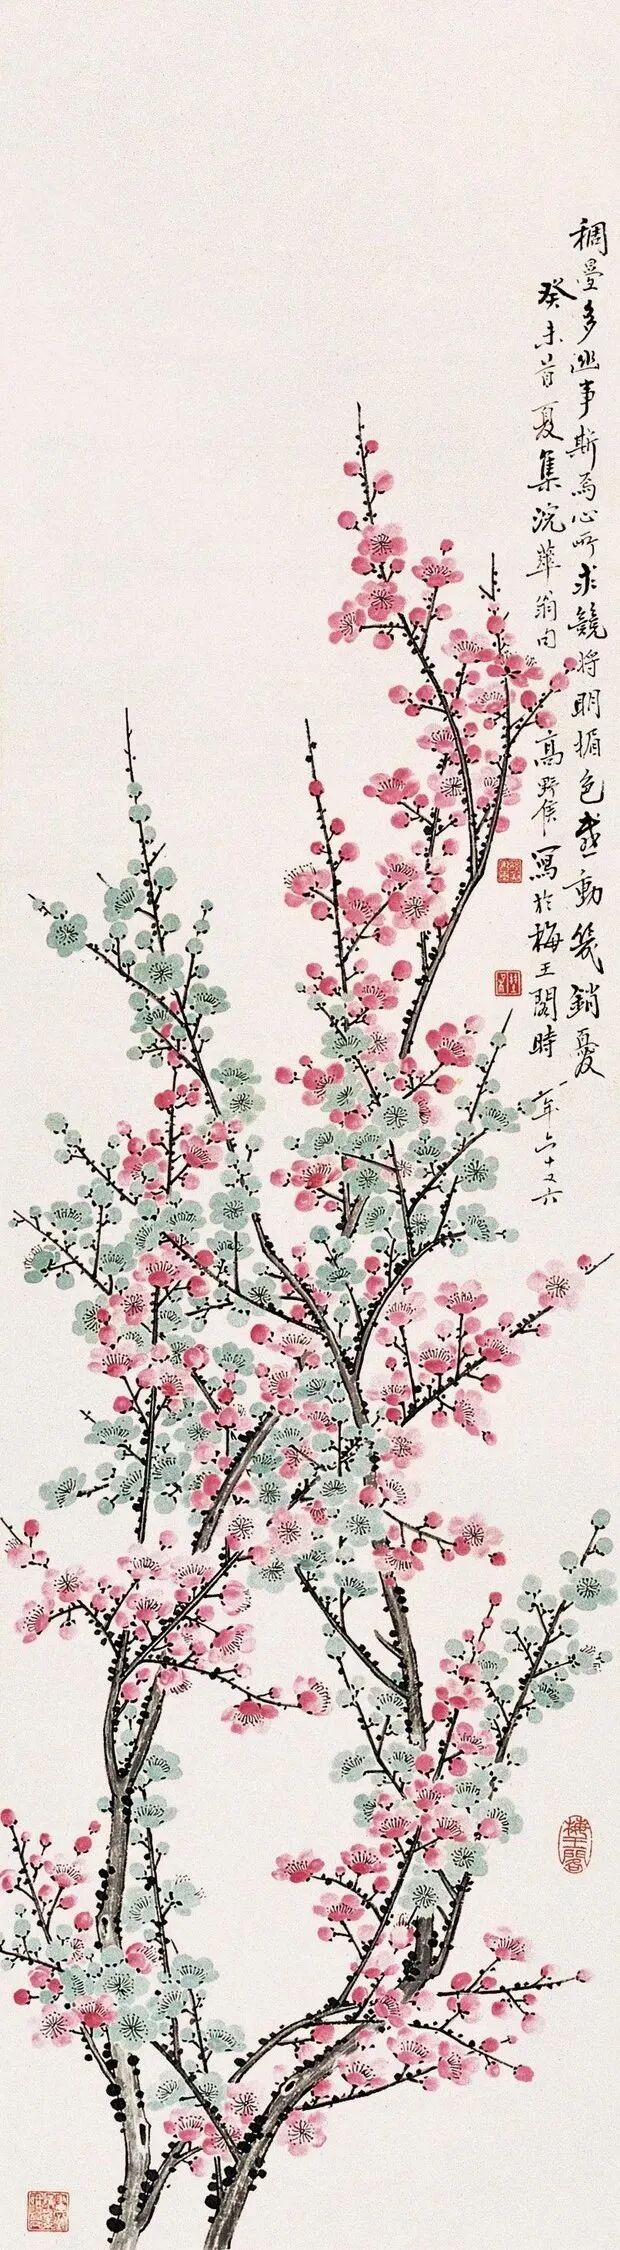 稠疊多幽事斯爲心所求競將明媚色感動幾銷憂
癸未首夏集浣華翁句高野侯寫於梅王閣時
年六十又六
梅王閣